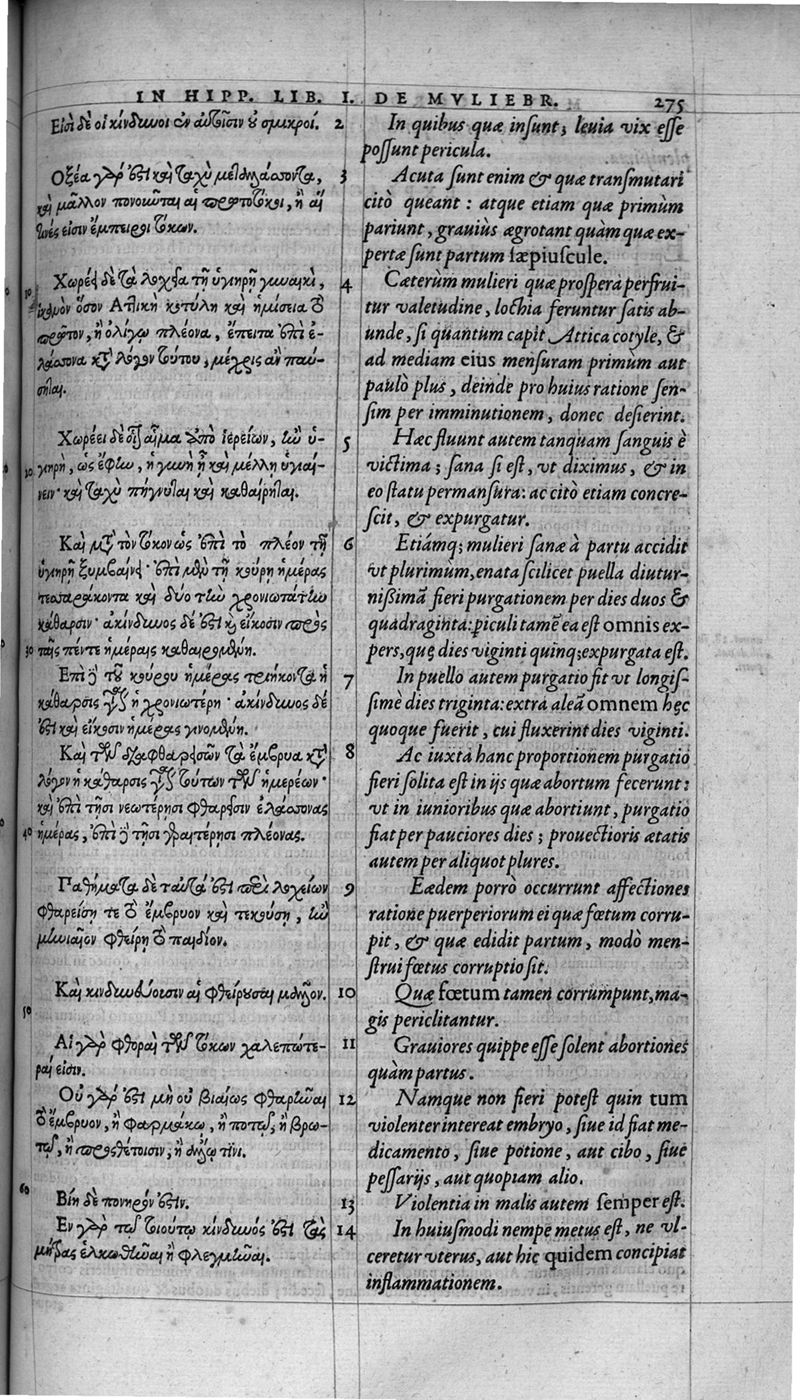 IN HIPP. LIB. I. DE MVLIEBR. 275
Εἰσὶ δὲ οἱ κίνδυνοι ἐν αὐτοῖσιν οὐ σμικροί. 2
In quibus quæ insunt, leuia vix esse
possunt pericula.
Οξέα γάρ ἐστι καὶ ταχὺ μεταλλάσσοντα, 3
καὶ μᾶλλον πονοῦνται αἱ πρωτοτόκοι, ἢ αἵ
τινές εἰσιν ἔμπειροι τόκων.
Acuta sunt enim & quæ transmutari
citò queant: atque etiam quæ primùm
pariunt, grauiùs ægrotant quàm quæ ex-
pertæ sunt partum sæpiuscule.
Χωρέει δὲ τὰ λοχεῖα τῇ ὑγιηρῇ γυναικὶ, 4
ἱκανὸν ὅσον Ἀττικὴ κοτύλη καὶ ἡμίσεια τὸ
πρῶτον, ἢ ὀλίγῳ πλέονα, ἔπειτα ἐπὶ ἐ-
λάσσονα κατὰ λόγον τούτου, μέχρις ἂν παύ-
σηται.
Cæterùm mulieri quæ prospera perfrui-
tur valetudine, lochia feruntur satis ab-
unde, si quantum capit Attica cotyle, &
ad mediam eius mensuram primùm aut
paulò plus, deinde pro huius ratione sen-
sim per imminutionem, donec desierint.
Χωρέει δὲ οἷον αἷμα ἀπὸ ἱερείων, ἢν ὑ- 5
γιηρὴ, ὡς ἔφην, ἡ γυνὴ ᾖ καὶ μέλλῃ ὑγιαί-
νειν· καὶ ταχὺ πήγνυται καὶ καθαίρηται.
Hæc fluunt autem tanquam sanguis è
victima; sana si est, vt diximus, & in
eo statu permansura: ac citò etiam concre-
scit, & expurgatur.
Καὶ μετὰ τὸν τόκον ὡς ἐπὶ τὸ πλέον τῇ 6
ὑγιηρῇ ξυμβαίνει· ἐπὶ μὲν τῇ κούρῃ ἡμέρας
τεσσαράκοντα καὶ δύο τὴν χρονιωτάτην
κάθαρσιν· ἀκίνδυνος δέ ἐστι κ εἴκοσιν πρὸς
ταῖς πέντε ἡμέραις καθαιρομένη.
Etiámq; mulieri sanæ à partu accidit
vt plurimùm, enata scilicet puella diutur-
nissimã fieri purgationem per dies duos &
quadraginta: ꝑiculi tamẽ ea est omnis ex-
pers, quę dies viginti quinq; expurgata est.
Επὶ δὲ τῷ κούρῳ ἡμέρας τριήκοντα ἡ 7
κάθαρσις γίνεται ἡ χρονιωτέρη· ἀκίνδυνος δέ
ἐστι καὶ εἴκοσιν ἡμέρας γινομένη.
In puello autem purgatio fit vt longis-
simè dies triginta: extra aleã omnem hęc
quoque fuerit, cui fluxerint dies viginti.
Καὶ τῶν διαφθαρεισῶν τὰ ἔμβρυα κατὰ 8
λόγον ἡ κάθαρσις γίνεται τούτων τῶν ἡμερέων·
καὶ ἐπὶ τῇσι νεωτέρῃσι φθάρσιν ἐλάσσονας
ἡμέρας, ἐπὶ δὲ τῇσι γεραιτέρῃσι πλέονας.
Ac iuxta hanc proportionem purgatio
fieri solita est in ijs quæ abortum fecerunt:
vt in iunioribus quæ abortiunt, purgatio
fiat per pauciores dies; prouectioris ætatis
autem per aliquot plures.
Παθήματα δὲ ταὐτά ἐστι περὶ λοχείων 9
φθαρείσῃ τε τὸ ἔμβρυον καὶ τεκούσῃ, ἢν
μηνιαῖον φθείρῃ τὸ παιδίον.
Eædem porrò occurrunt affectiones
ratione puerperiorum ei quæ fœtum corru-
pit, & quæ edidit partum, modò men-
strui fœtus corruptio sit.
Καὶ κινδυνεύουσιν αἱ φθείρουσαι μᾶλλον. 10
Quæ fœtum tamen corrumpunt, ma-
gis periclitantur.
Αἱ γὰρ φθοραὶ τῶν τόκων χαλεπώτε- 11
ραί εἰσιν.
Grauiores quippe esse solent abortiones
quàm partus.
Οὐ γάρ ἐστι μὴ οὐ βιαίως φθαρῆναι 12
τὸ ἔμβρυον, ἢ φαρμάκῳ, ἢ ποτῷ, ἢ βρω-
τῷ, ἢ προσθέτοισιν, ἢ ἄλλῳ τινί.
Namque non fieri potest quin tum
violenter intereat embryo, siue id fiat me-
dicamento, siue potione, aut cibo, siue
pessarijs, aut quopiam alio.
Βίη δὲ πονηρόν ἐστιν. 13
Violentia in malis autem semper est.
Εν γὰρ τῷ τοιούτῳ κίνδυνός ἐστι τὰς 14
μήτρας ἑλκωθῆναι ἢ φλεγμῆναι.
In huiusmodi nempe metus est, ne vl-
ceretur vterus, aut hic quidem concipiat
inflammationem.